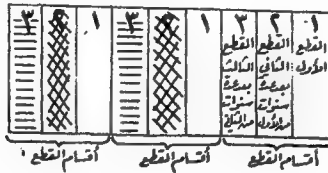 ١ ٢ ٣ ١ ٢ ٣ ١ ٢ ٣
القطع الأول
القطع الثاني بعدة سنوات من الأول
القطع الثالث بعدة سنوات من الثاني
أقسام القطع
أقسام القطع
أقسام القطع